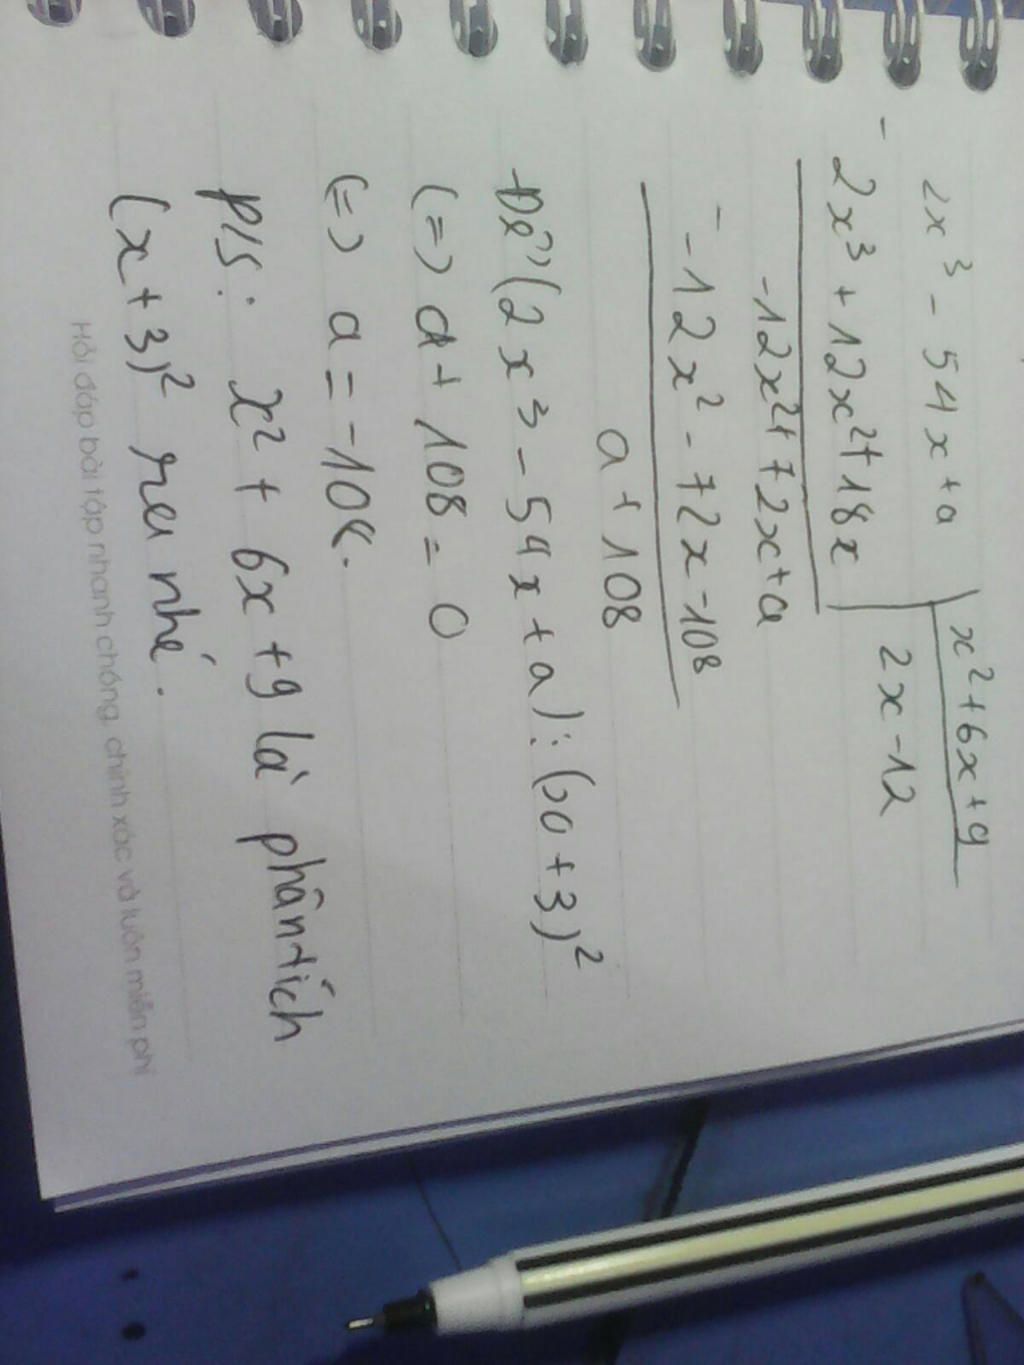 2x³ - 54x + a | x² + 6x + 9
- 2x³ + 12x² + 18x | 2x - 12
-12x² + 72x + a
- -12x² - 72x - 108
a + 108
Để (2x³ - 54x + a) : (x + 3)²
(=) a + 108 = 0
(=) a = -108.
P/S: x² + 6x + 9 là phân tích
(x + 3)² ra nhé.
Hỏi đáp bài tập nhanh chóng, chính xác và luôn miễn phí